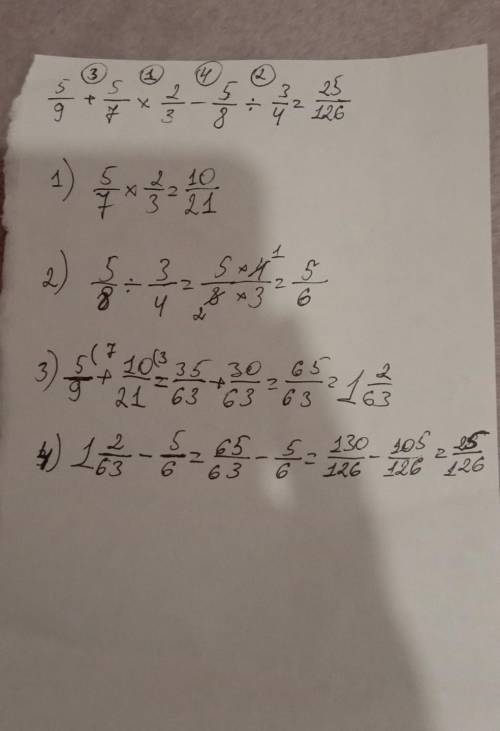 ③ ① ④ ②
5/9 + 5/7 × 2/3 − 5/8 ÷ 3/4 = 25/126
1) 5/7 × 2/3 = 10/21
2) 5/8 ÷ 3/4 = 5 × 4 1 / 2 8 × 3 = 5/6
3) 5/9 (7 + 10/21 (3 = 35/63 + 30/63 = 65/63 = 1 2/63
4) 1 2/63 − 5/6 = 65/63 − 5/6 = 130/126 − 105/126 = 25/126